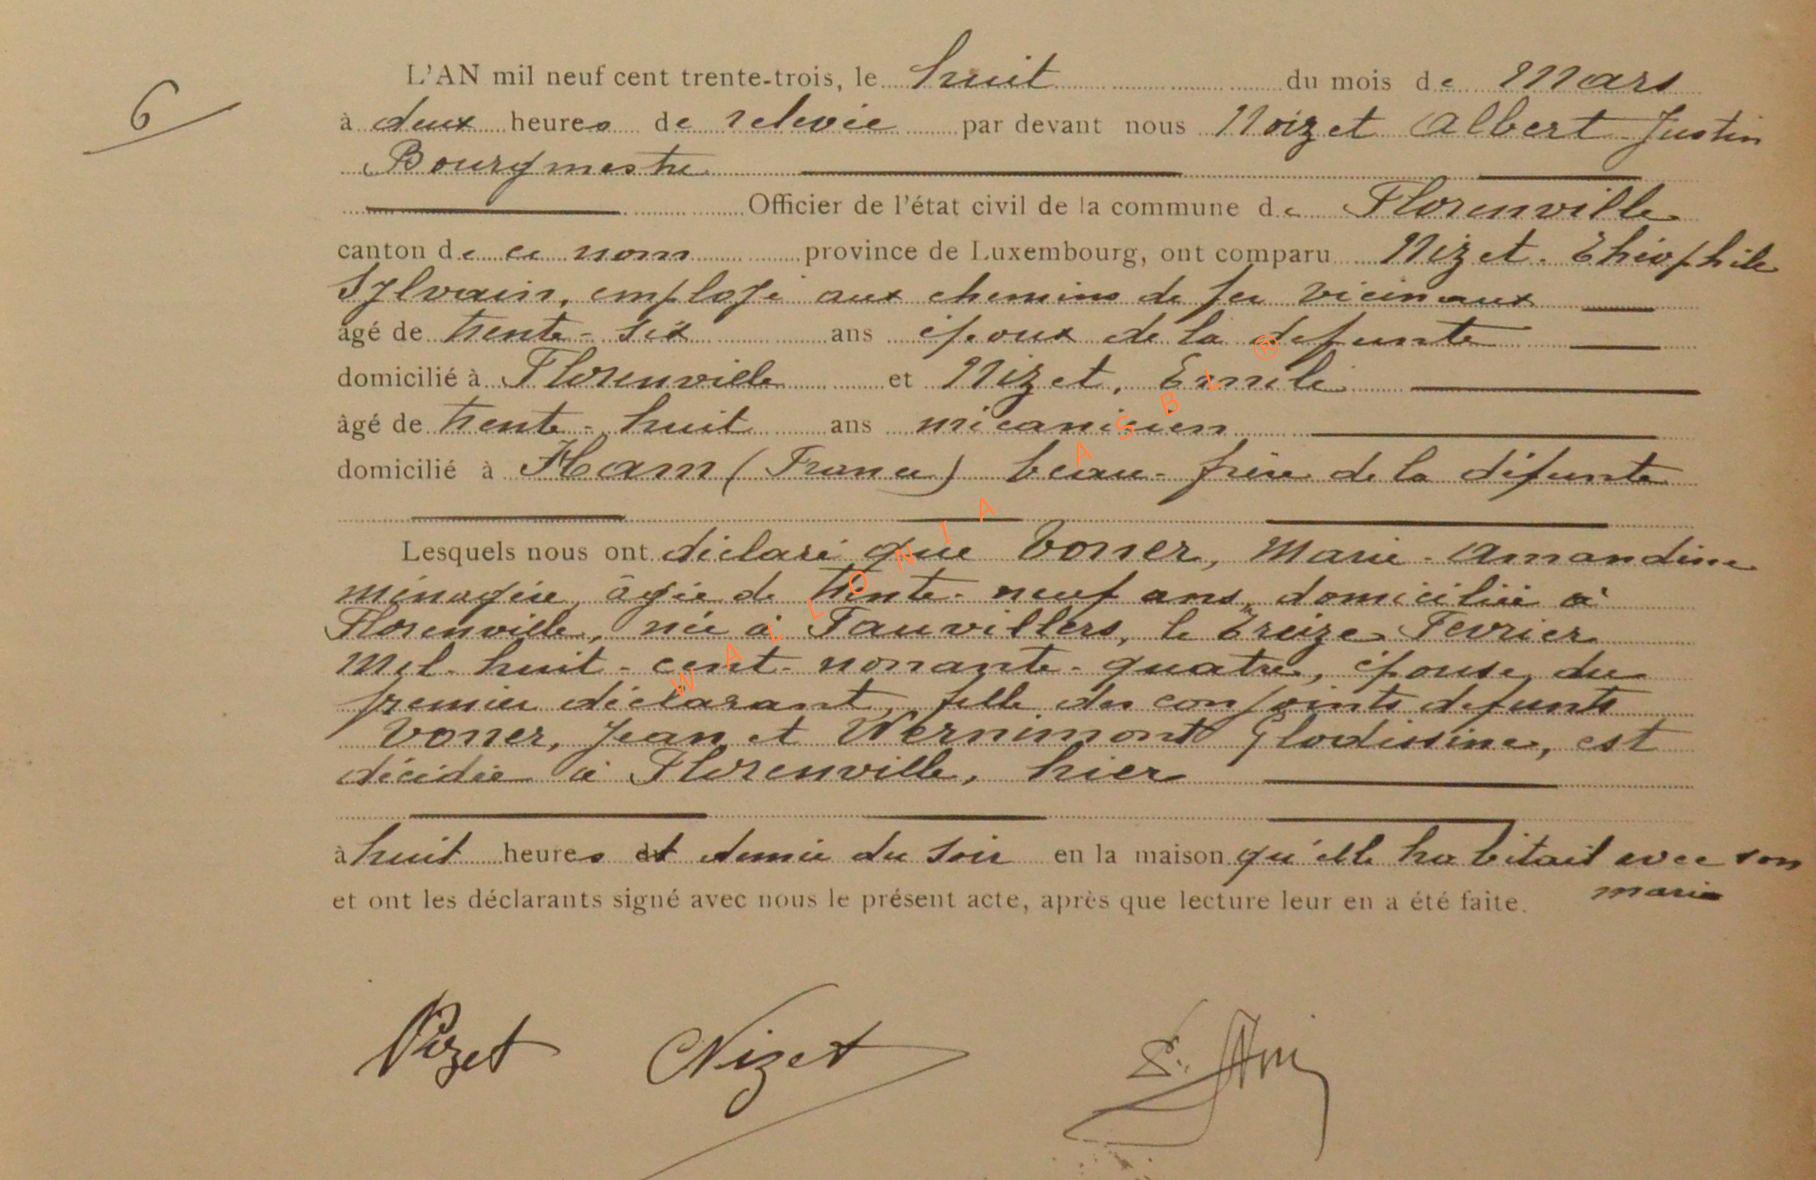 6
L'AN mil neuf cent trente-trois, le huit du mois de Mars
à deux heures de relevée par devant nous Noizet Albert Justin
Bourgmestre
Officier de l'état civil de la commune de Florenville
canton de ce nom province de Luxembourg, ont comparu Nizet. Théophile
Sylvain, employé aux chemins de fer vicinaux
âgé de trente-six ans époux de la défunte
domicilié à Florenville et Nizet, Emile
âgé de trente-huit ans mécanicien
domicilié à Ham (France) beau-frère de la défunte
Lesquels nous ont déclaré que Voner, Marie-Amandine
ménagère, âgée de trente-neuf ans, domiciliée à
Florenville, née à Fauvillers, le treize Février
Mil-huit-cent-nonante-quatre, épouse du
premier déclarant, fille des conjoints défunts
Voner, Jean et Wernimont Glodissine, est
décédée à Florenville, hier
à huit heures et demie du soir en la maison qu'elle habitait avec son
mari
et ont les déclarants signé avec nous le présent acte, après que lecture leur en a été faite.
Nizet Nizet
WALLONIA ASBL ®